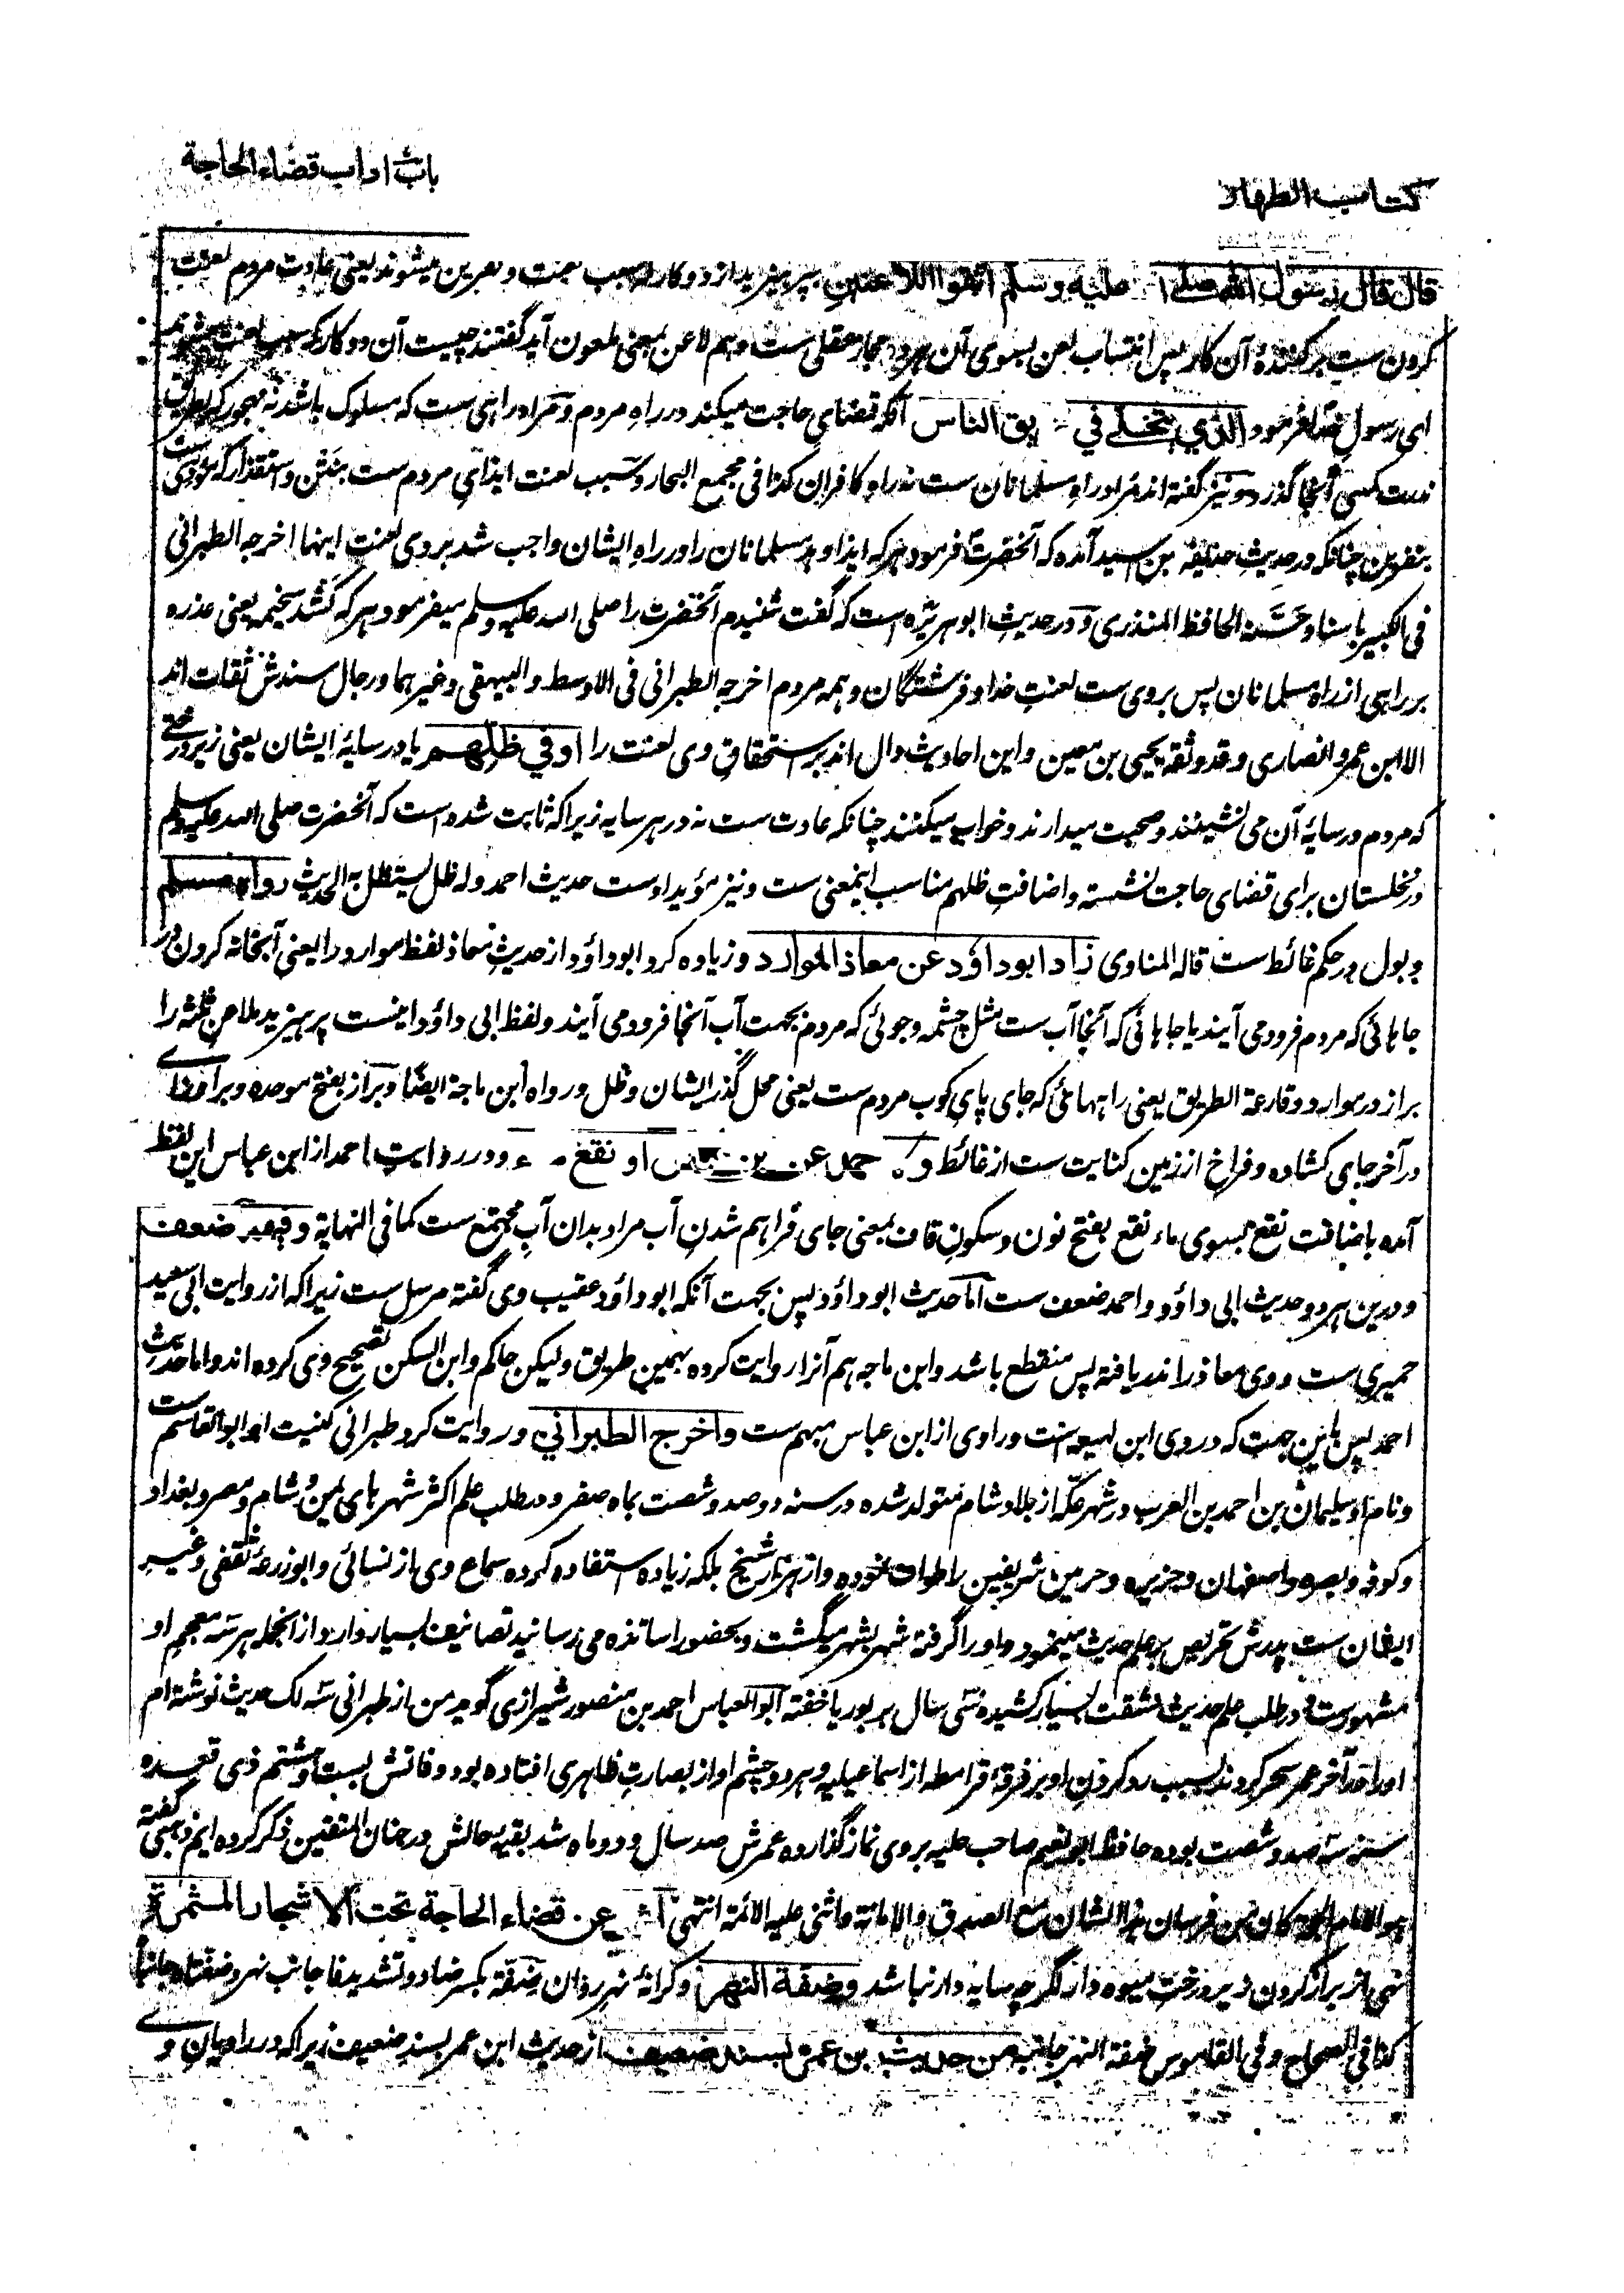 باب اداب قضاء الحاجة
كتاب الطهارة
قال قال رسول الله صلى عليه وسلم اتقوا اللاعنين بپرهیزید از دو کار که سبب لعنت و نفرین میشوند یعنی عادت مردم لعنت
کردن ست بر کننده آن کار پس انتساب لعن بسوی آن هر دو مجاز عقلی ست و هم لاعن بمعنی ملعون آید گفتند چیست آن دو کار که سبب لعنت
ای رسول خدا فرمود الذي يتخلى في يق الناس آنکه قضای حاجت میکند در راه مردم و مراد راهی ست که مسلوک باشد نه مهجور که
ندرت کسی آنجا گذرد و نیز گفته اند مراد راه مسلمانان ست نه راه کافران کذا فی مجمع البحار و سبب لعنت ایذای مردم ست بنتن و استقذار که
بنفرین چنانکه در حدیث حذیفه بن اسید آمده که آنحضرت فرمود هر که ایذا دهد مسلمانان را در راه ایشان واجب شد بر وی لعنت اینها اخرجه الطبرانی
فی الکبیر باسناد حسنه الحافظ المنذری و در حدیث ابو هریره است که گفت شنیدم آنحضرت را صلی الله علیه وسلم میفرمود هر که کشد سخیمه یعنی عذره
بر راهی از راه مسلمانان پس بروی ست لعنت خدا و فرشتگان و همه مردم اخرجه الطبرانی فی الاوسط والبیهقی وغیرهما و رجال سندش ثقات اند
الا ابن عمرو انصاری و قد وثقه یحیی بن معین و این احادیث دال اند بر استحقاق وی لعنت را او في ظلهم یا در سایه ایشان یعنی زیر درختی
که مردم در سایه آن می نشینند و صحبت میدارند و خواب میکنند چنانکه عادت ست نه در هر سایه زیرا که ثابت شده است که آنحضرت صلی الله علیه وسلم
در نخلستان برای قضای حاجت نشسته و اضافت ظلهم مناسب اینمعنی ست و نیز مؤید اوست حدیث احمد و له ظل یستظل به الحدیث رواه مسلم
و بول در حکم غائط ست قاله المناوی زاد ابوداؤد عن معاذ الموارد و زیاده کرد ابوداؤد از حدیث معاذ لفظ موارد را یعنی آبخانه کردن در
جاهائی که مردم فرود می آیند یا جاهائی که آنجا آب ست مثل چشمه و جوئی که مردم بجهت آب آنجا فرود می آیند و لفظ ابی داؤد اینست پرهیزید ملاعن ثلثه را
براز در موارد و قارعة الطریق یعنی راههائی که جای پای کوب مردم ست یعنی محل گذر ایشان و ظل و رواه ابن ماجة ایضا و براز بفتح موحده و برا
در آخر جای کشاده و فراخ از زمین کنایت ست از غائط و حمد عن بن س او نقع ء و در روایت احمد از ابن عباس این لفظ
آمده باضافت نقع بسوی ماء نقع بفتح نون و سکون قاف بمعنی جای فراهم شدن آب مراد بدان آب مجتمع ست کما فی النهایة وفيهما ضعف
و درین هر دو حدیث ابی داؤد و احمد ضعف ست اما حدیث ابوداؤد پس بجهت آنکه ابوداؤد عقیب وی گفته مرسل ست زیرا که از روایت ابی سعید
حمیری ست و وی معاذ را در نیافته پس منقطع باشد و ابن ماجه هم آنرا روایت کرده بهمین طریق و لیکن حاکم و ابن السکن تصحیح وی کرده اند و اما حدیث
احمد پس باین جهت که در وی ابن لهیعه است و راوی از ابن عباس مبهم ست واخرج الطبراني و روایت کرد طبرانی کنیت او ابو القاسم ست
و نام او سلیمان بن احمد بن در شهر عکه از بلاد شام متولد شده در سنه دوصد و شصت بماه صفر و در طلب علم اکثر شهرهای یمن و شام و مصر و بغداد
و کوفه و بصره و اصفهان و جزیره و حرمین شریفین را طواف نموده و از هزار شیخ بلکه زیاده استفاده کرده سماع وی از نسائی و ابو زرعه ثقفی و غیر
ایشان ست پدرش تحریص بر علم حدیث مینمود و او را گرفته شهر بشهر میگشت و بحضور اساتذه می رسانید تصانیف بسیار دارد از انجمله هر سه معجم او
مشهورست در طلب علم حدیث مشقت بسیار کشیده سی سال بر بوریا خفته ابو العباس احمد بن منصور شیرازی گوید من از طبرانی سه لک حدیث نوشته ام
او را در آخر عمر سحر کردند بسبب رد کردن او بر فرقه قرامطه از اسماعیلیه و هر دو چشم او از بصارت ظاهری افتاده بود وفاتش بست و هشتم ذی قعده
سنه سه صد و شصت بوده حافظ ابو نعیم صاحب حلیه بر وی نماز گذارده عمرش صد سال و دو ماه شد بقیه حالش در جنان المتقین ذکر کرده ایم ذهبی گفته
هو الامام کان من فرسان هذا الشان مع الصدق والامانة و اثنی علیه الائمة انتهی عن قضاء الحاجة تحت الاشجار المثمرة
نهی از براز کردن زیر درخت میوه دار اگرچه سایه دار نباشد وضفة النهر و کرانه نهر روان ضفة بکسر ضاد و تشدید فا جانب نهر و ضفتاه جانباه
کذا فی الصحاح و فی القاموس ضفة النهر جانبه من حديث بن عمر بسند ضعيف از حدیث ابن عمر بسند ضعیف زیرا که در راویان وے